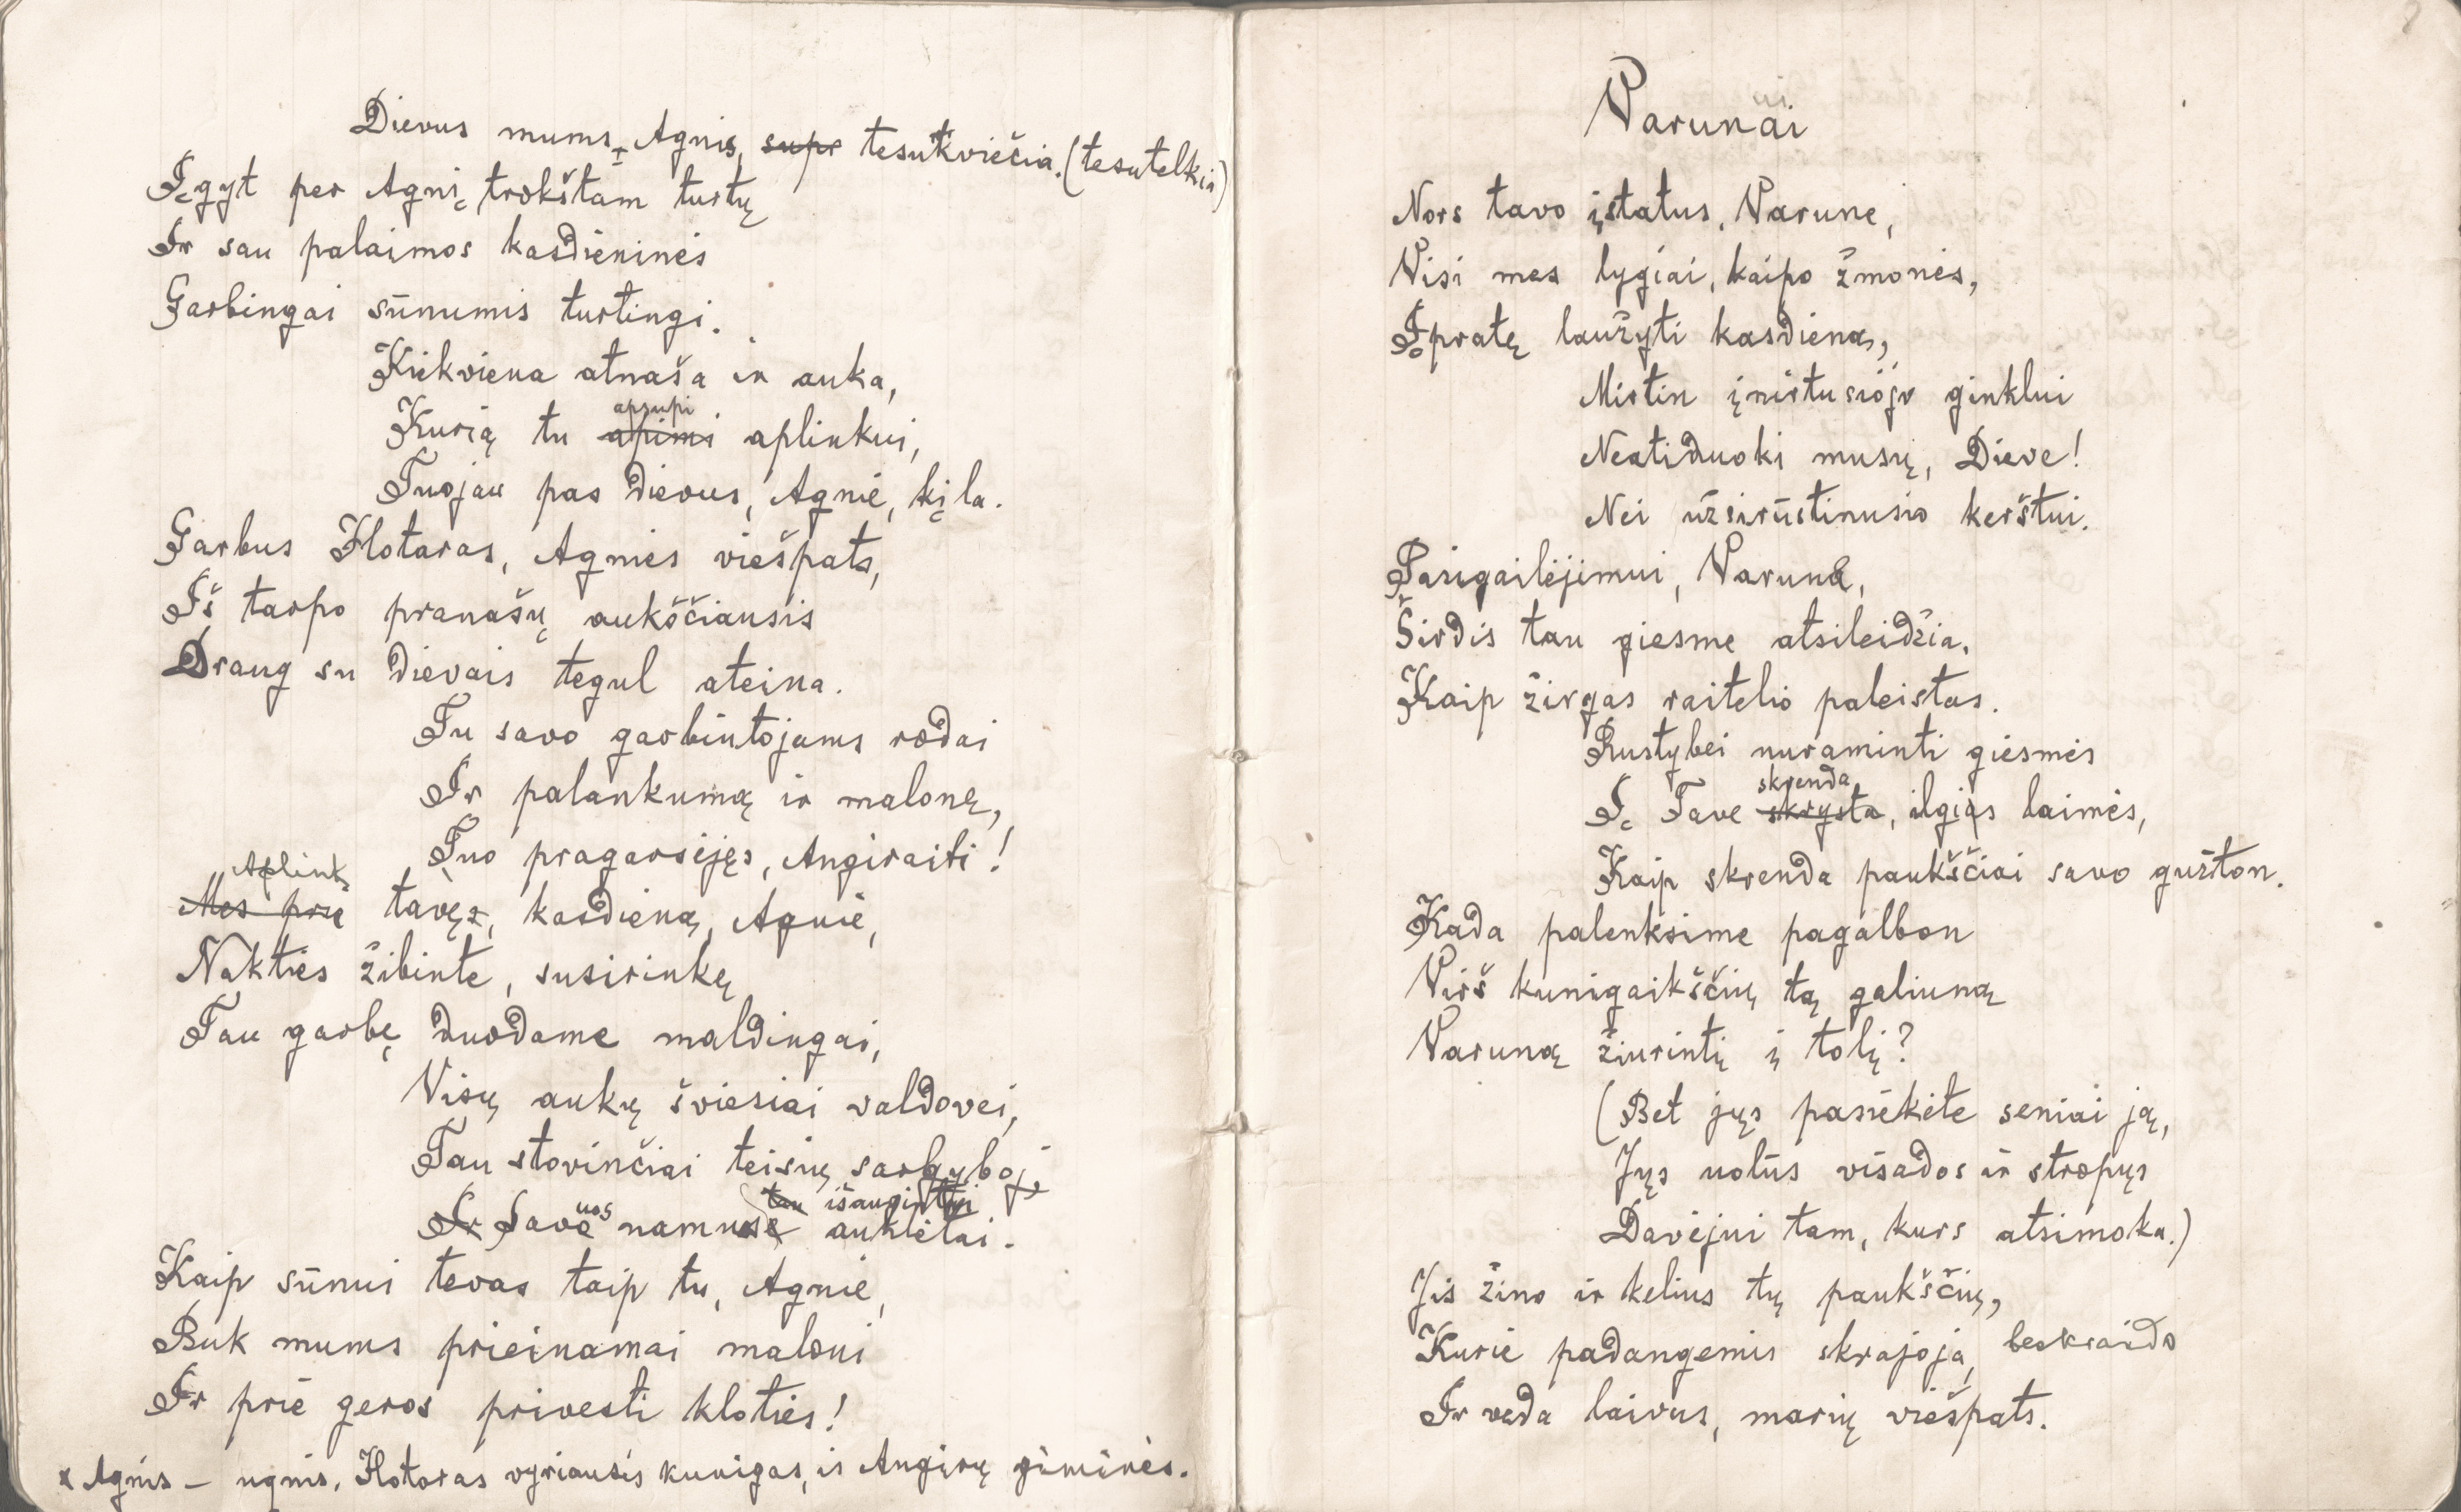 Dievus mums, Agnis, supr tesukviečia. (tesutelkia)
Įgyt per Agnį trokštam turtų
Ir sau palaimos kasdieninės
Garbingai sūnumis turtingi.
Kiekviena atnaša ir auka,
apsupi
Kurią tu apimi aplinkui,
Tuojau pas dievus, Agnie, kįla.
Garbus Hotaras, Agnies viešpats,
Iš tarpo pranašų aukščiausis
Draug su dievais tegul ateina.
Tu savo garbintojams rodai
Ir palankumą ir malonę,
Tuo pragarsėjęs, Angiraiti!
Aplink
Mes prie tavęs, kasdieną, Agnie,
Nakties žibinte, susirinkę
Tau garbę duodame maldingai,
Visų aukų šviesiai valdovei,
Tau stovinčiai teisių sargyboj,
uos tau išaugintai
Ir Save namuse auklėtai.
Kaip sūnui tevas taip tu, Agnie,
Buk mums prieinamai maloni
Ir prie geros privesti kloties!
x Agnis – ugnis. Hotaras vyriausis kunigas, is Angirų giminės.
Varunai
Nors tavo įstatus, Varune,
Visi mes lygiai, kaipo žmonės,
Įpratę laužyti kasdieną,
Mirtin įnirtusiojo ginklui
Neatiduoki musų, Dieve!
Nei užsirūstinusio kerštui.
Pasigailėjimui, Varuna,
Širdis tau giesme atsileidžia,
Kaip žirgas raitelio paleistas.
Rustybei nuraminti giesmės
skrenda
Į Tave skrysta, ilgias laimės,
Kaip skrenda paukščiai savo gužton.
Kada palenksime pagalbon
Virš kunigaikščių tą galiuną
Varuną žiurintį į tolį?
(Bet jųs pasiekėte seniai ją,
Jųs uolūs visados ir stropųs
Davėjui tam, kurs atsimoka.)
Jis žino ir kelius tų paukščių,
Kurie padangemis skrajoja, beskraido
Ir veda laivus, marių viešpats.